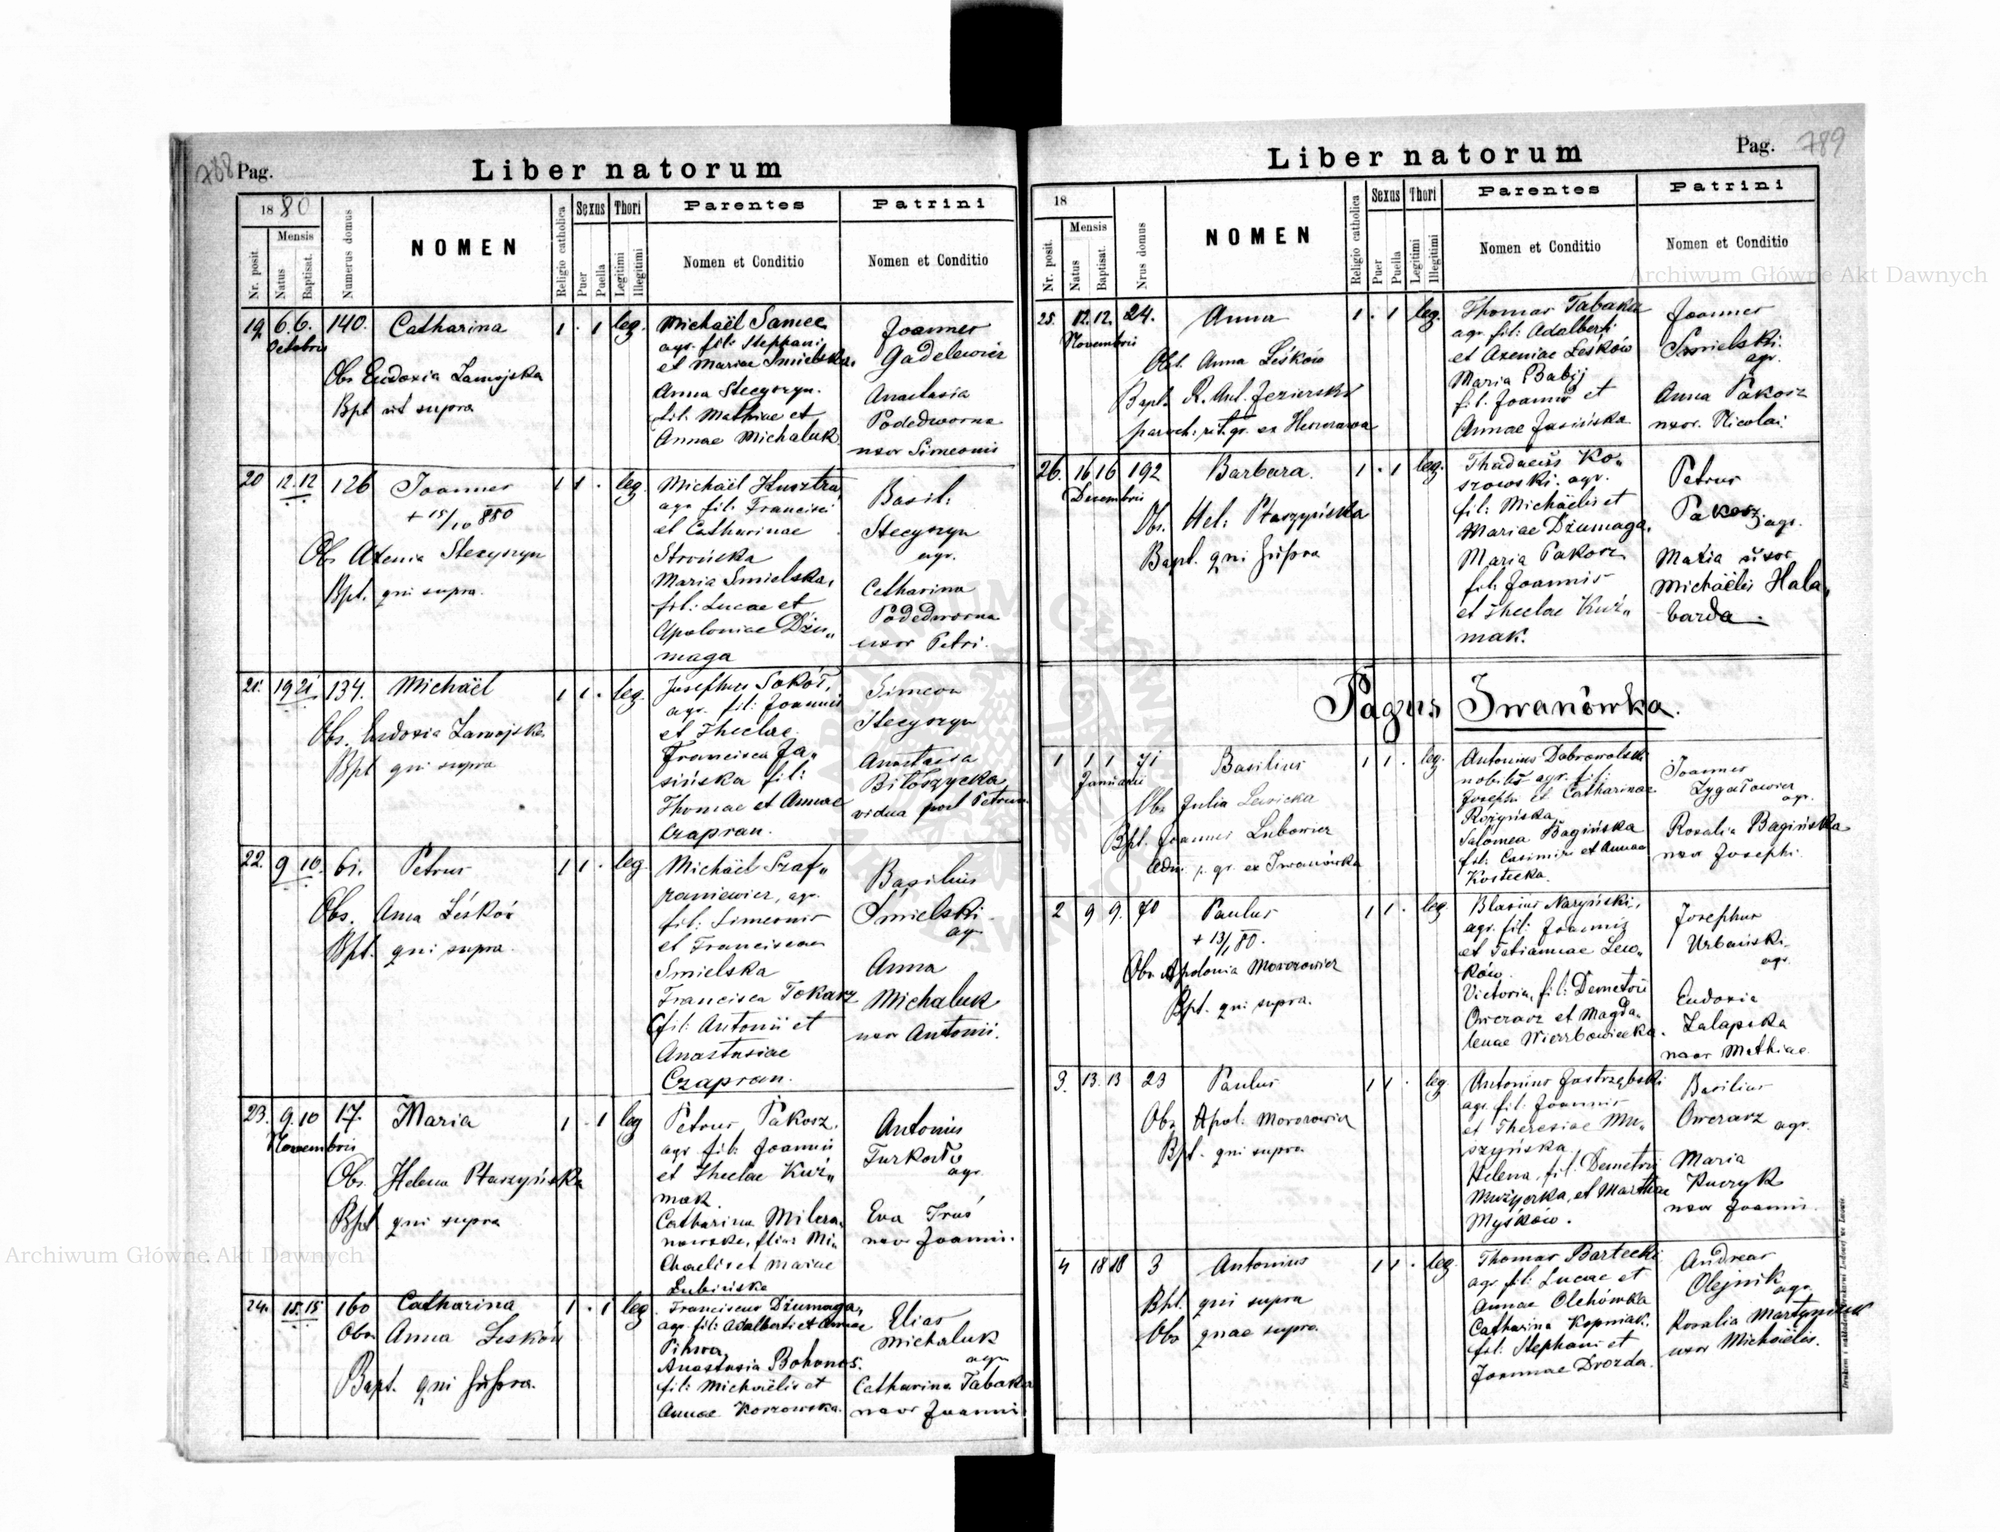 788 Pag.
Liber natorum
1880
Nr. posit.
Mensis
Natus
Baptisat.
Numerus domus
NOMEN
Religio catholica
Sexus
Puer
Puella
Thori
Legitimi
Illegitimi
Parentes
Nomen et Conditio
Patrini
Nomen et Conditio
19 6. 6. 140. Catharina 1 . 1 leg.
Octobris
Obs Eudoxia Zamojska
Bpt ut supra
Michaël Samec
agr. fil: Stephani
et Mariae Smielska.
Anna Stecyszyn.
fil. Mathiae et
Annae Michaluk
Joannes
Gadelewicz
Anastasia
Podedworna
uxor Simeonis
20 12. 12 126 Joannes 1 1 . leg.
+ 15/10 880
Obs Axenia Stecyszyn
Bpt. qui supra.
Michaël Kusztra
agr. fil: Francisci
et Catharinae
Strońska
Maria Smielska,
fil: Lucae et
Apoloniae Dżu„
maga
Basil:
Stecyszyn
agr.
Catharina
Podedworna
uxor Petri.
21. 19 21. 134. Michaël 1 1 . leg.
Obs. Eudoxia Zamojska
Bpt qui supra
Josephus Sokół,
agr. fil: Joannis
et Theclae
Francisca Ja„
sińska fil:
Thomae et Annae
Czapran.
Simeon
Stecyszyn
Anastasia
Biłoszycka
vidua post Petrum
22. 9 10. 61. Petrus 1 1 . leg.
Obs. Anna Leśków
Bpt. qui supra.
Michaël Szaf„
raniewicz, agr.
fil: Simeonis
et Franciscae
Smielska
Francisca Tokarz
fil: Antonii et
Anastasiae
Czapran.
Basilius
Smielski
agr
Anna
Michaluk
uxor Antonii.
23. 9. 10 17. Maria 1 . 1 leg
Novembris
Obs. Helena Ptaszyńska
Bpt qui supra
Petrus Pakosz,
agr fil: Joannis
et Theclae Kuź„
mak
Catharina
fil: Mi„
chaelis et Mariae
Lubińska
Antonius
agr.
Eva
uxor Joannis.
24. 15. 15 160 Catharina 1 . 1 leg
Obs Anna Leśków
Bapt. qui supra.
Franciscus Dżumaga,
agr. fil: Adalberti et Annae
Anastasia Bohonos.
fil: Michaëlis et
Annae Koszowska.
Elias
Michaluk
agr
Catharina Tabaka
uxor Joannis
Liber natorum
Pag. 789
18
Nr. posit.
Mensis
Natus
Baptisat.
Nrus domus
NOMEN
Religio catholica
Sexus
Puer
Puella
Thori
Legitimi
Illegitimi
Parentes
Nomen et Conditio
Patrini
Nomen et Conditio
25. 12. 12. 24. Anna 1 . 1 leg.
Novembris
Obst. Anna Leśków
Bapt. R. Ant. Jezierski
paroch. rit. gr. ex
Thomas Tabaka
agr fil: Adalberti
et Axeniae Leśków
Maria Babij
fil. Joannis et
Annae Jasińska
Joannes
Smielski
agr.
Anna Pakosz
uxor. Nicolai
26. 16 16 192 Barbara. 1 . 1 leg.
Decembris
Obs. Hel: Ptaszyńska
Bapt. qui supra
Thadaeus Ko„
szowski. agr.
fil: Michaëlis et
Mariae Dżumaga.
Maria Pakosz
fil: Joannis
et Theclae Kuź„
mak.
Petrus
Pakosz agr.
Maria uxor
Michaëlis Hala„
barda.
Pagus Iwanówka.
1 1 1 71 Basilius 1 1 . leg.
Januarii
Obs Julia Lewicka
Bpt. Joannes Lubowicz
Adm. r. gr. ex Iwanówka
Antonius Dobrowolski
nobilis agr. fil:
Josephi et Catharinae
Rożyńska
Salomea Bagińska
fil: Casimiri et Annae
Kostecka.
Joannes
agr.
Rosalia Bagińska
uxor Josephi.
2 9 9. 70 Paulus 1 1 . leg
+ 13/1 80.
Obs Apolonia Morozowicz
Bpt. qui supra.
Blasius Naryński,
agr. fil: Joannis
et Tetiannae Lew„
ków.
Victoria, fil: Demetrii
Owczarz et Magda„
lenae Wierzbowiecka.
Josephus
Urbański
agr.
Eudoxia
Zalapska
uxor Mathiae
3. 13. 13 23 Paulus 1 1 . leg
Obs Apol: Morozowicz
Bpt. qui supra
Antonius Jastrzębski
agr fil: Joannis
et Theresiae Mu„
szyńska
Helena, fil: Demetrii
et Marthae
Myśków.
Basilius
Owczarz agr.
Maria
Kuczyk
uxor Joannis.
4 18 18 3 Antonius 1 1 . leg
Bpt. qui supra
Obs quae supra
Thomas Bartecki
agr fil: Lucae et
Annae Olchówka
Catharina Kopniak.
fil: Stephani et
Joannae Drozda.
Andreas
Olejnik agr
Rosalia Martyniuk
uxor Michaëlis.
Archiwum Główne Akt Dawnych
Archiwum Główne Akt Dawnych